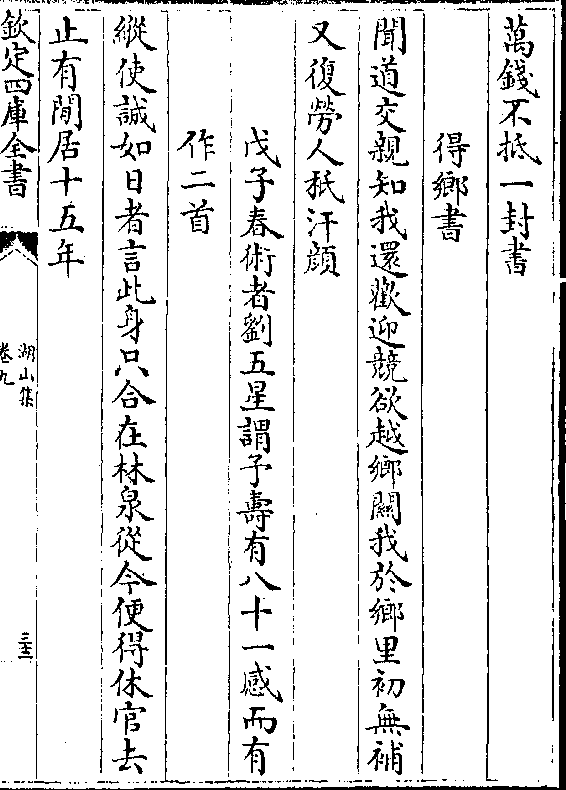 萬錢不抵一封書
得鄉書
聞道交親知我還歡迎競欲越鄉關我於鄉里初無補
又復勞人秪汗顔
戊子春術者劉五星謂予壽有八十一感而有
作二首
縱使誠如日者言此身只合在林泉從今便得休官去
止有閒居十五年
欽定四庫全書
湖山集
卷九